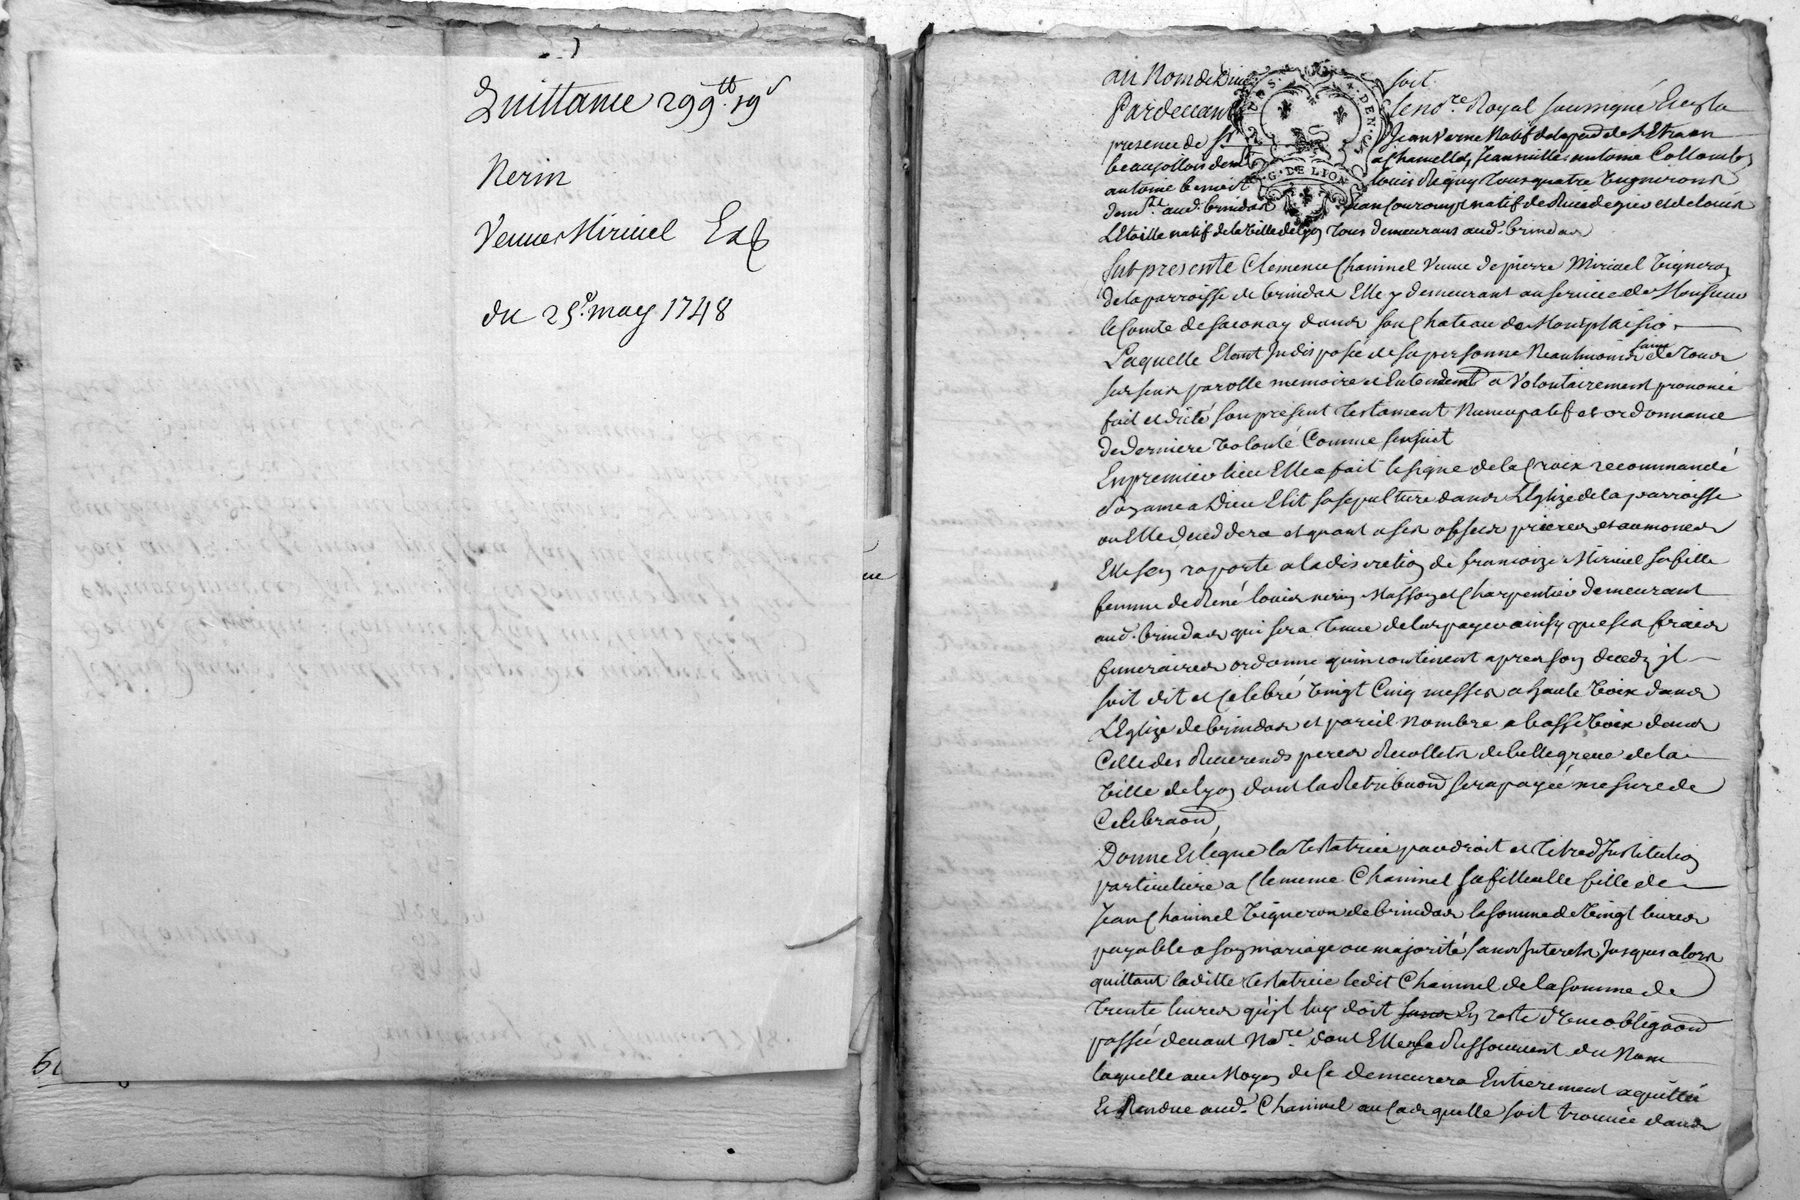 Quittance 299 ₶ 19 s
Nerin
Veuve Miricel
du 25e may 1748
au Nom de Dieu soit
Pardevant le no.re Royal soussigné Et en la
presence de Jean Verne Natif de
beaujollois dem.t a Chamelles, Jean antoine Collomb
antoine benoist louis Vignerons
dem.ts aud. brindas natif de et de louis
L'Etoille natif de la Ville de Lyon tous demeurans aud. brindas
fut presente Clemence Chaninel Veuve de pierre Miricel Vigneron
de la parroisse de brindas Elle y demeurant au service de Monsieur
le Comte de Saconay dans son Chateau de Montplaisir
Laquelle Etant Indisposée de sa personne Neantmoins saine de tous
ses sens parolle memoire et Entendem.t a Volontairement prononcé
fait et dicté son present testament Nuncupatif et ordonnance
de derniere Volonté Comme sensuit
En premier lieu Elle a fait le signe de la Croix recommandé
son ame a Dieu Elit sa sepulture dans L'Eglize de la parroisse
ou Elle deceddera et quant a ses obseq prieres et aumones
Elle s'en raporte a la discretion de francoize Miricel sa fille
femme de René louis nerin Masson et Charpentier demeurant
aud. brindas qui sera tenue de les payer ainsy que ses frais
funeraires ordonne qu'incontinent apres son decedz il
soit dit et Celebré Vingt Cinq messes a haute Voix dans
L'Eglize de brindas et pareil Nombre a basse Voix dans
Celle des Reverends peres Recollets de bellegreve de la
Ville de Lyon dont la Retribuon sera payée a mesure de
Celebraon,
Donne Et legue la testatrice par droit et titre d'Institution
particuliere a Clemence Chaninel sa filleulle fille de
Jean Chaninel Vigneron de brindas la somme de Vingt livres
payable a son mariage ou majorité sans Interets Jusques alors
quittant laditte testatrice ledit Chaninel de la somme de
trente livres qu'il luy doit En reste d'Une obligaon
passée devant No.re dont Elle ne se Ressouvient du Nom
laquelle au Moyen de Ce demeurera Entierement aquittée
Et Rendue aud. Chaninel au Cas quelle soit trouvée dans